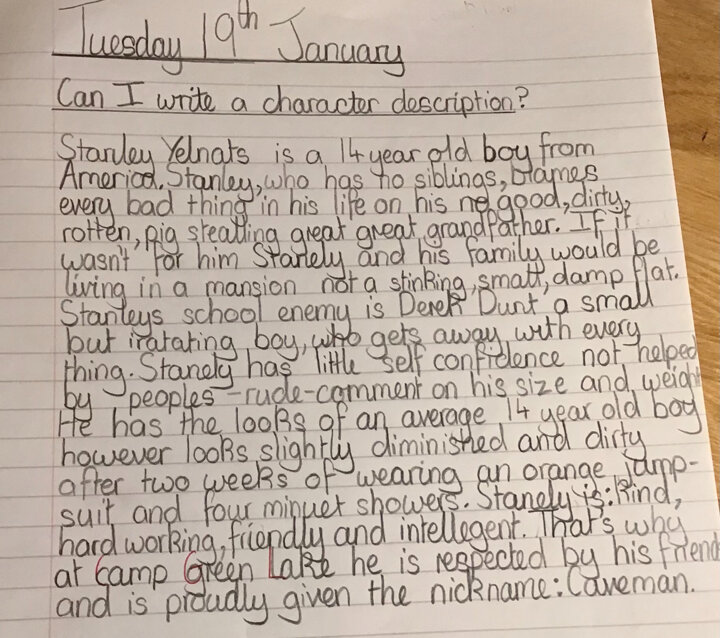 Tuesday 19th January
Can I write a character description?
Stanley Yelnats is a 14 year old boy from
America. Stanley, who has no siblings, blames
every bad thing in his life on his no good, dirty,
rotten, pig stealling great great grandfather. If it
wasn't for him Stanely and his family would be
living in a mansion not a stinking, small, damp flat.
Stanleys school enemy is Derek Dunt a small
but iratating boy, who gets away with every
thing. Stanely has little self confidence not helped
by peoples -rude-comment on his size and weight
He has the looks of an average 14 year old boy
however looks slightly diminished and dirty
after two weeks of wearing an orange jump-
suit and four minuet showers. Stanely is: kind,
hard working, friendly and intellegent. That's why
at Camp Green Lake he is respected by his friend
and is proudly given the nickname: Caveman.